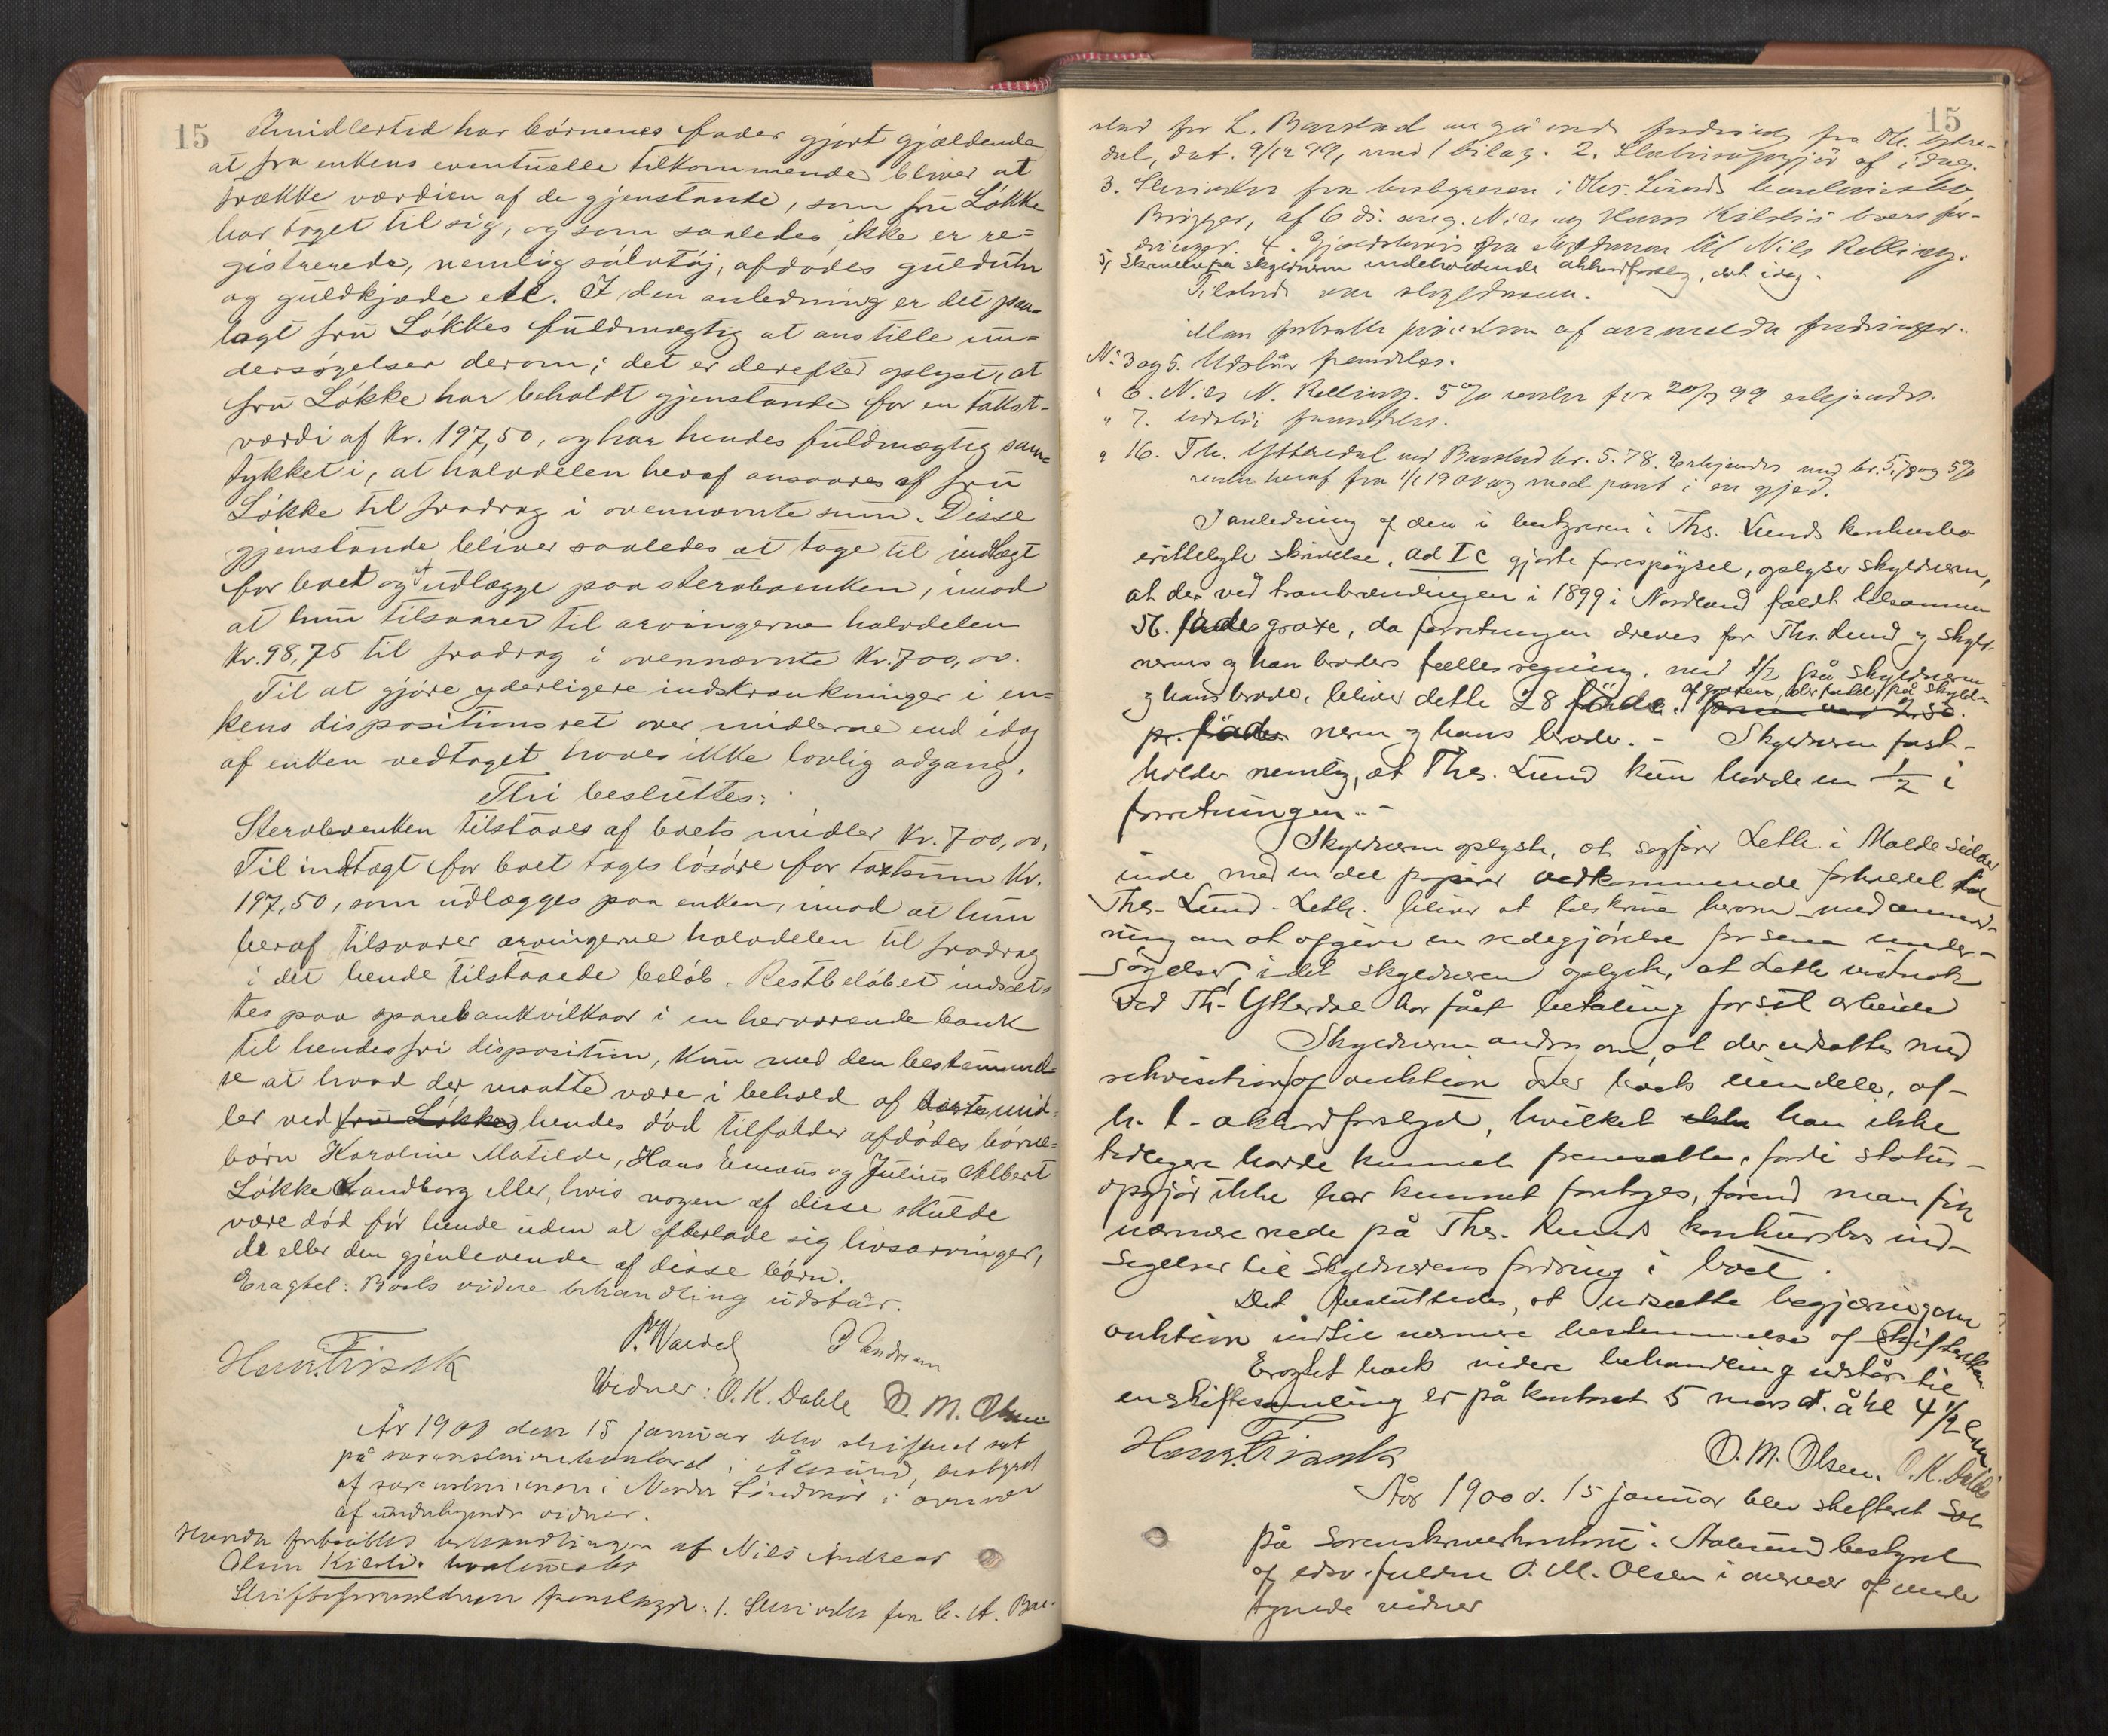 15
Imidlertid har börnenes fader gjort gjældende
at fra enkens eventuelle tilkommende bliver at
trække værdien af de gjenstande, som fru Lökke
har taget til sig, og som saaledes ikke er re=
gistrerede, nemlig sölvtöj, afdödes guldur
og guldkjæde etc. I den anledning er det paa-
lagt fru Lökkes fuldmægtig at anstille un=
dersögelser derom; det er derefter oplyst, at
fru Lökke har beholdt gjenstande for en takst-
værdi af Kr. 197,50, og har hendes fuldmægtig sam=
tykket i, at halvdelen heraf ansvares af fru
Lökke til fradrag i ovennævnte sum. Disse
gjenstande bliver saaledes at tage til indtægt
for boet og at udlægge paa sterboenken, imod
at hun tilsvarer til arvingerne halvdelen
Kr. 98,75 til fradrag i ovennævnte Kr. 700,00.
Til at gjöre yderligere indskrænkninger i en=
kens dispositionsret over midlerne end idag
af enken vedtaget haves ikke lovlig adgang.
Thi besluttes:
Sterboenken tilstaaes af boets midler Kr. 700,00,
Til indtægt for boet tages lösöre for taxtsum Kr.
197,50, som udlægges paa enken, imod at hun
heraf tilsvarer arvingerne halvdelen til fradrag
i det hende tilstaaede belöb. Restbelöbet indsæt-
tes paa sparebankvilkaar i en herværende bank
til hendes fri disposition, kun med den bestemmel-
se at hvad der maatte være i behold af boets mid=
ler ved fru Lökkes hendes död tilfalder afdödes börne=
börn Karoline Matilde, Hans Emaus og Julius Albert
Lökke Landborg eller, hvis nogen af disse skulde
være död för hende uden at efterlade sig livsarvinger,
de eller den gjenlevende af disse börn.
Eragtet: Boets videre behandling udstaar.
Hans Friisak
Vidner: O. K. Dahle O. M. Olsen
År 1900 den 15 januar blev skifteret sat
på sorenskriverkontoret i Ålesund, bestyret
af sorenskriveren i Nordre Söndmör i overvær
af undertegnede vidner.
Hvorda fortsattes behandlingen af Nils Andreas
Olsen Kilsti
Skifteforvalteren fremlagde: 1. Skrivelse fra
15
stad for L. Barstad angående fordring fra Ytre-
dal, dat. 9/12 99, med 1 bilag. 2. af idag.
3. Skrivelse fra bestyreren i Ths. Lunds konkursbo
af 6 ds. ang. Nils og Hans Kilstis boers for-
dringer. 4. Gjældsbevis fra skyldneren til Nils Relling.
5, Skrivelse fra skyldneren indeholdende akkordforslag, dat. idag.
Tilstede var skyldneren.
Man fortsatte prövelsen af anmeldte fordringer.
No 3 og 5. Udstår fremdeles.
" 6. Nils N. Relling. 5% renter fra 20/7 99 erkjendes.
" 7. Udstår fremdeles.
" 16. Th. Ytterdal ved Barstad kr. 5.78. Erkjendes med kr. 5,78 og 5%
renter heraf fra 1/1 1900 og med pant i en gjed.
I anledning af den i bestyreren i Ths. Lunds konkursbo
erittelagte skrivelse, ad I c gjorte forespörsel, oplyser skyldneren,
at der ved tranbrændingen i 1899 i Nordland faldt tilsammen
56 fade graxe, da forretningen dreves for Ths. Lund og skyld-
nerens og han broders fælles regning, med 1/2 på skyldneren
og hans broder, bliver dette 28 fade af graxen, der falder på skyld-
pr. fade. neren og hans broder. - Skyldneren fast-
holder nemlig, at Ths. Lund kun havde en 1/2 i
forretningen. -
Skyldneren oplyste, at sagförer Leth i Molde sidder
inde med en del papirer vedkommende forholdet til
Ths. Lund. Leth bliver at tilskrive herom med anmod-
ning om at afgive en redegjörelse for sine under-
sögelser, idet skyldneren oplyste, at Leth
ved Th. Ytterdal har fået betaling for sit arbeide
Skyldneren androg om, at der udsattes med
rekvisition af auktion over boets eiendele, af-
h. t. akkordforslaget, hvilket ikke han ikke
tidligere havde kunnet fremsætte, fordi status-
opgjör ikke har kunnet foretages, förend man fik
nærmere rede på Ths. Lunds konkursbos ind-
sigelser til skyldnerens fordring i boet.
Det besluttedes, at udsætte begjæring om
auktion indtil nærmere bestemmelse af skifteretten
Eragtet boets videre behandling udstår til
en skiftesamling her på kontoret 5 mars d. å. kl 4 1/2 em
Hans Friisak
O. M. Olsen. O. K. Dahle
Aar 1900 d. 15 januar blev skifteret sat
på sorenskriverkontoret i Aalesund bestyret
af edsv. fuldm O. M. Olsen i overvær af under
tegnede vidner